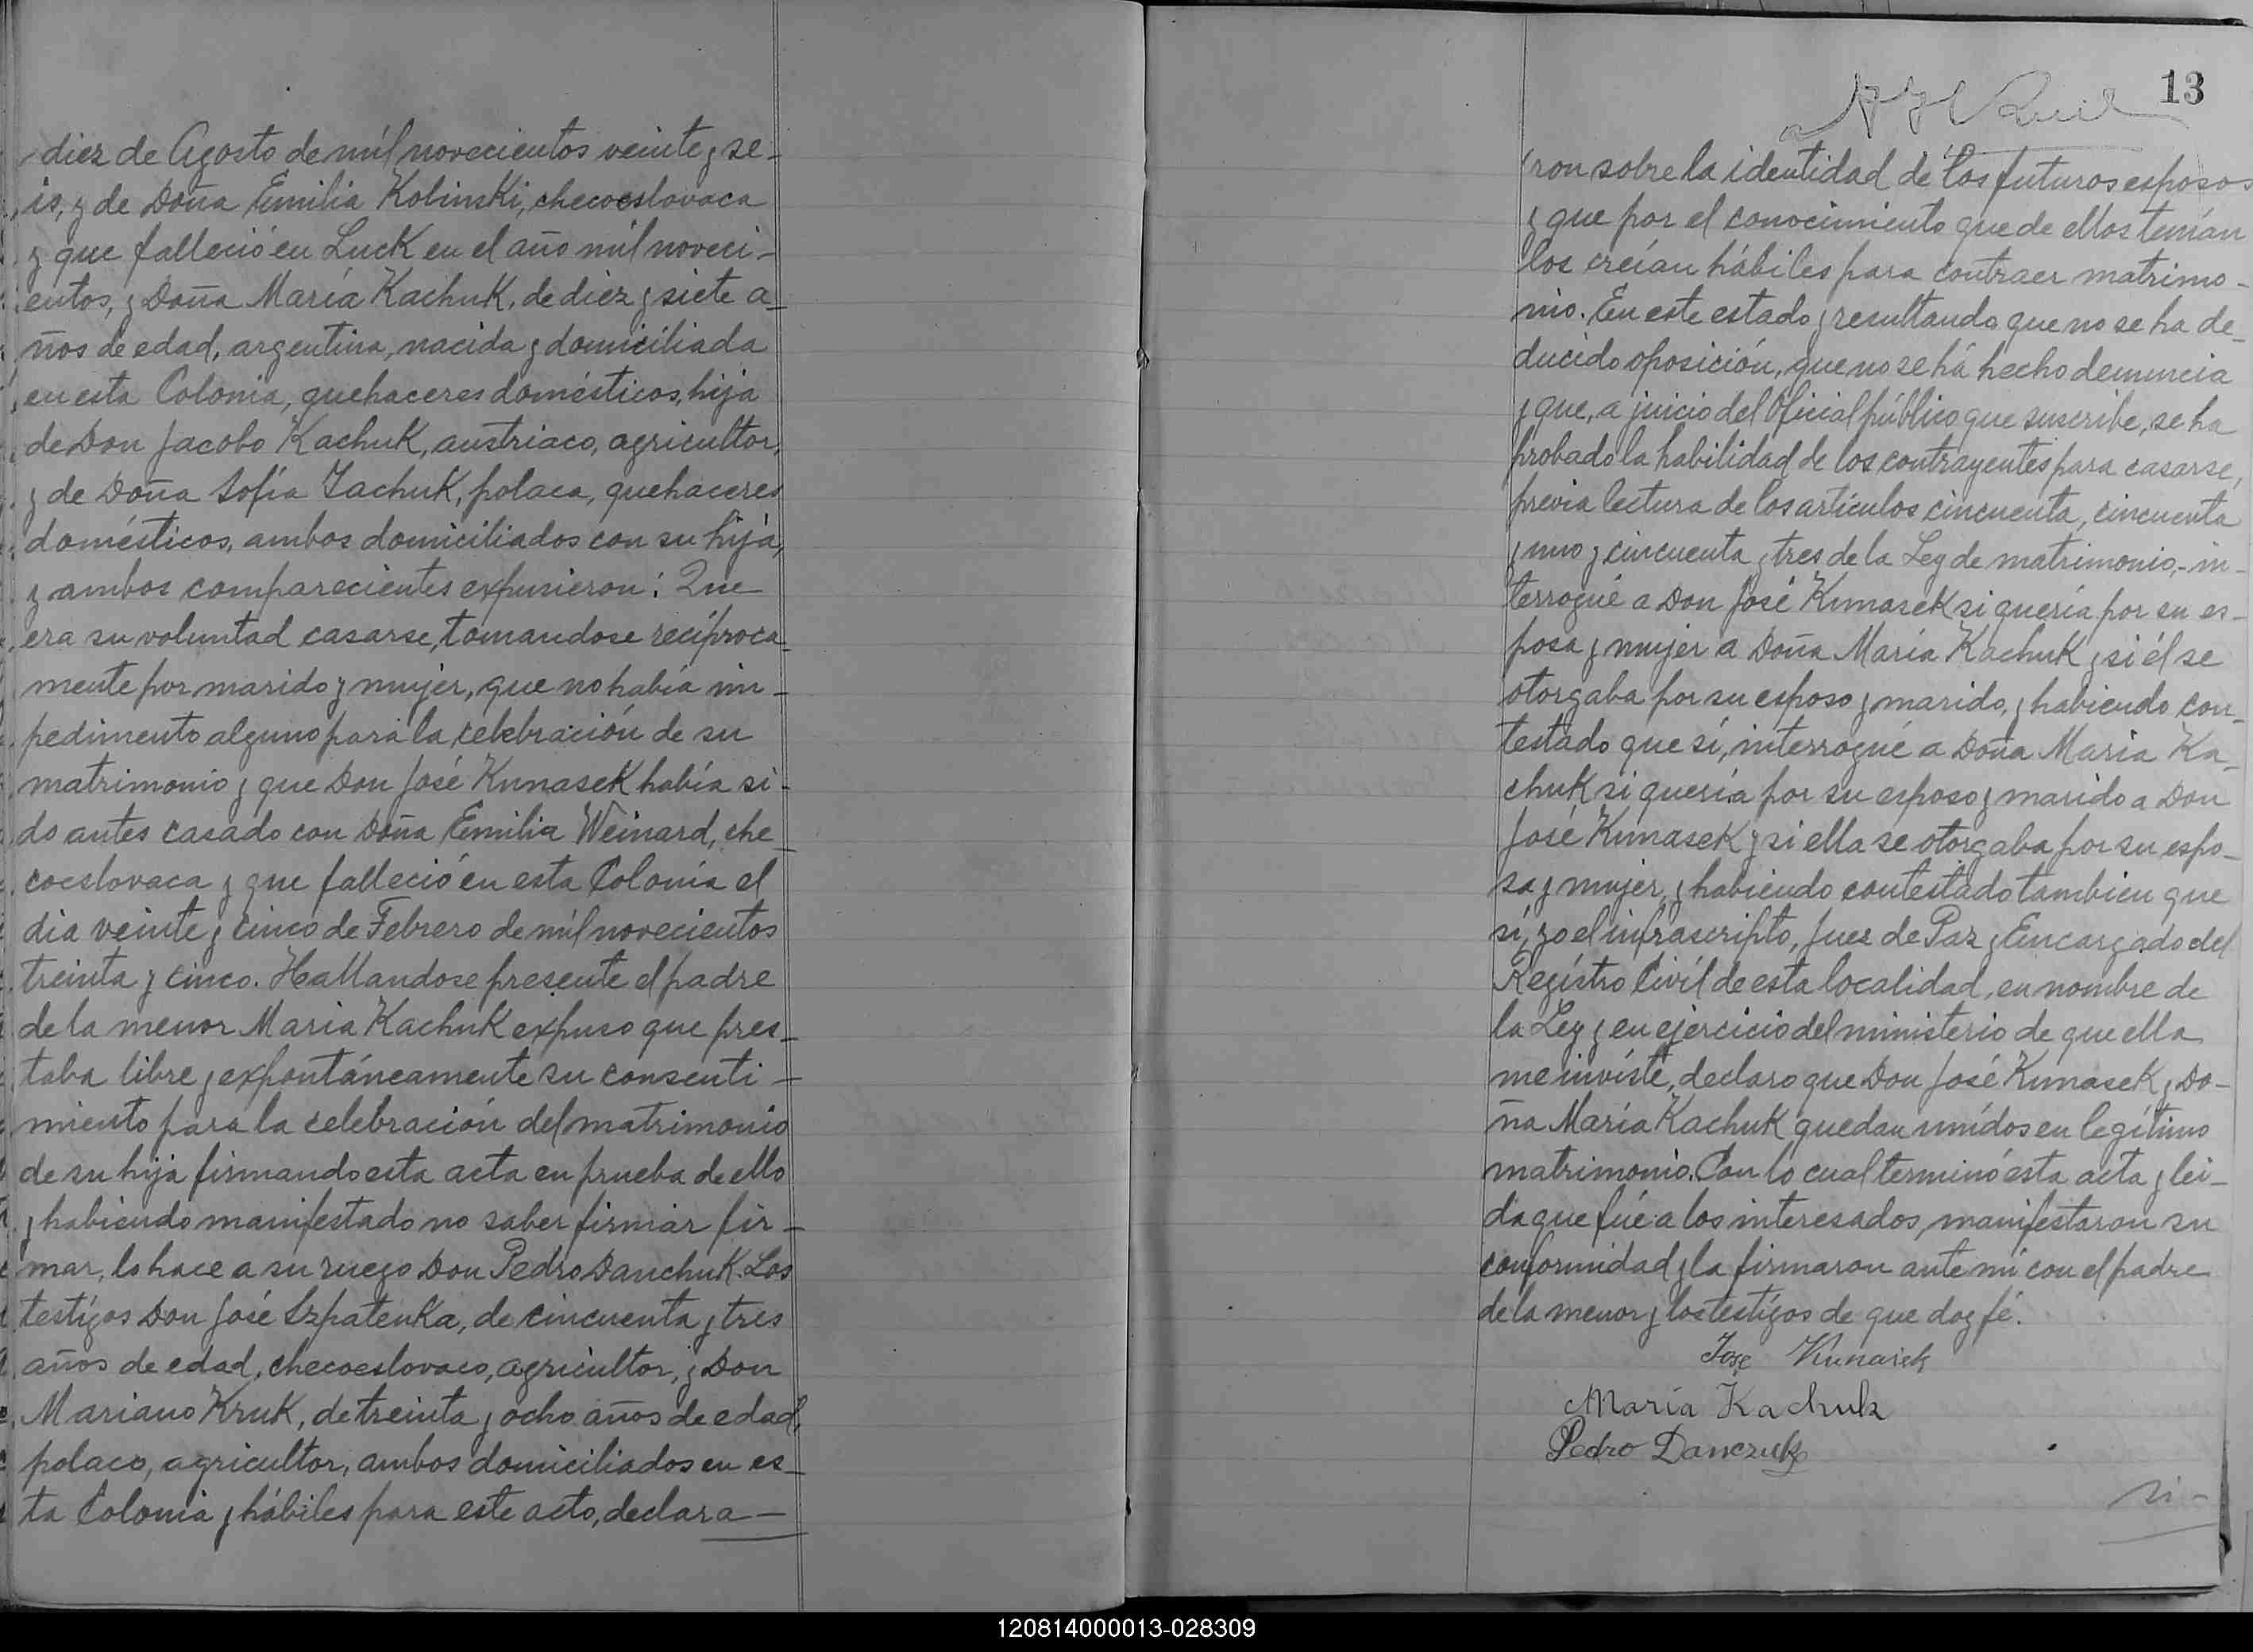 diez de Agosto de míl novecientos veinte y se-
is, y de Doña Emilia Kolinski, checoeslovaca
y que falleció en Luck en el año míl noveci-
entos, y Doña María Kachuk, de diez y siete a-
ños de edad, argentina, nacida y domiciliada
en esta Colonia, quehaceres domésticos, hija
de Don Jacobo Kachuk, austriaco, agricultor,
y de Doña Sofía Tachuk, polaca, quehaceres
domésticos, ambos domiciliados con su hija,
y ambos comparecientes expusieron: Que
era su voluntad casarse, tomandose recíproca-
mente por marido y mujer, que no había im-
pedimento alguno para la celebración de su
matrimonio y que Don José Kunasek había si-
do antes casado con Doña Emilia Weinard, che-
coeslovaca y que falleció en esta Colonia el
dia veinte y cinco de Febrero de míl novecientos
treinta y cinco. Hallandose presente el padre
de la menor Maria Kachuk expuso que pres-
taba libre y expontáneamente su consenti-
miento para la celebración del matrimonio
de su hija firmando esta acta en prueba de ello
y habiendo manifestado no saber firmar fir-
mar, lo hace a su ruego Don Pedro Danchuk. Los
testígos Don José Szpatenka, de cincuenta y tres
años de edad, checoeslovaco, agricultor, y Don
Mariano Kruk, de treinta y ocho años de edad,
polaco, agricultor, ambos domiciliados en es-
ta Colonia y hábiles para este acto, declara-
13
ron sobre la identidad de los futuros esposos
y que por el conocimiento que de ellos tenían
los creían hábiles para contraer matrimo-
nio. En este estado y resultando que no se ha de-
ducido oposición, que no se há hecho denuncia
y que, a juicio del Oficial público que suscribe, se ha
probado la habilidad de los contrayentes para casarse,
previa lectura de los artículos cincuenta, cincuenta
y uno y cincuenta y tres de la Ley de matrimonio, - in-
terrogué a Don José Kunasek si quería por su es-
posa y mujer a Doña María Kachuk y si él se
otorgaba por su esposo y marido, y habiendo con-
testado que sí, interrogué a Doña Maria Ka-
chuk si quería por su esposo y marido a Don
José Kunasek y si ella se otorgaba por su espo-
sa y mujer, y habiendo contestado tambien que
sí, yo el infrascripto, Juez de Paz y Encargado del
Regístro Civíl de esta localidad, en nombre de
la Ley y en ejercicio del ministerio de que ella
me inviste, declaro que Don José Kunasek y Do-
ña María Kachuk quedan unídos en legítimo
matrimonio. Con lo cual terminó esta acta y lei-
da que fué a los interesados, manifestaron su
conformidad y la firmaron ante mí con el padre
de la menor y los testígos de que doy fé.
Jose Kunasek
María Kachuk
Pedro Danczuk
120814000013-028309